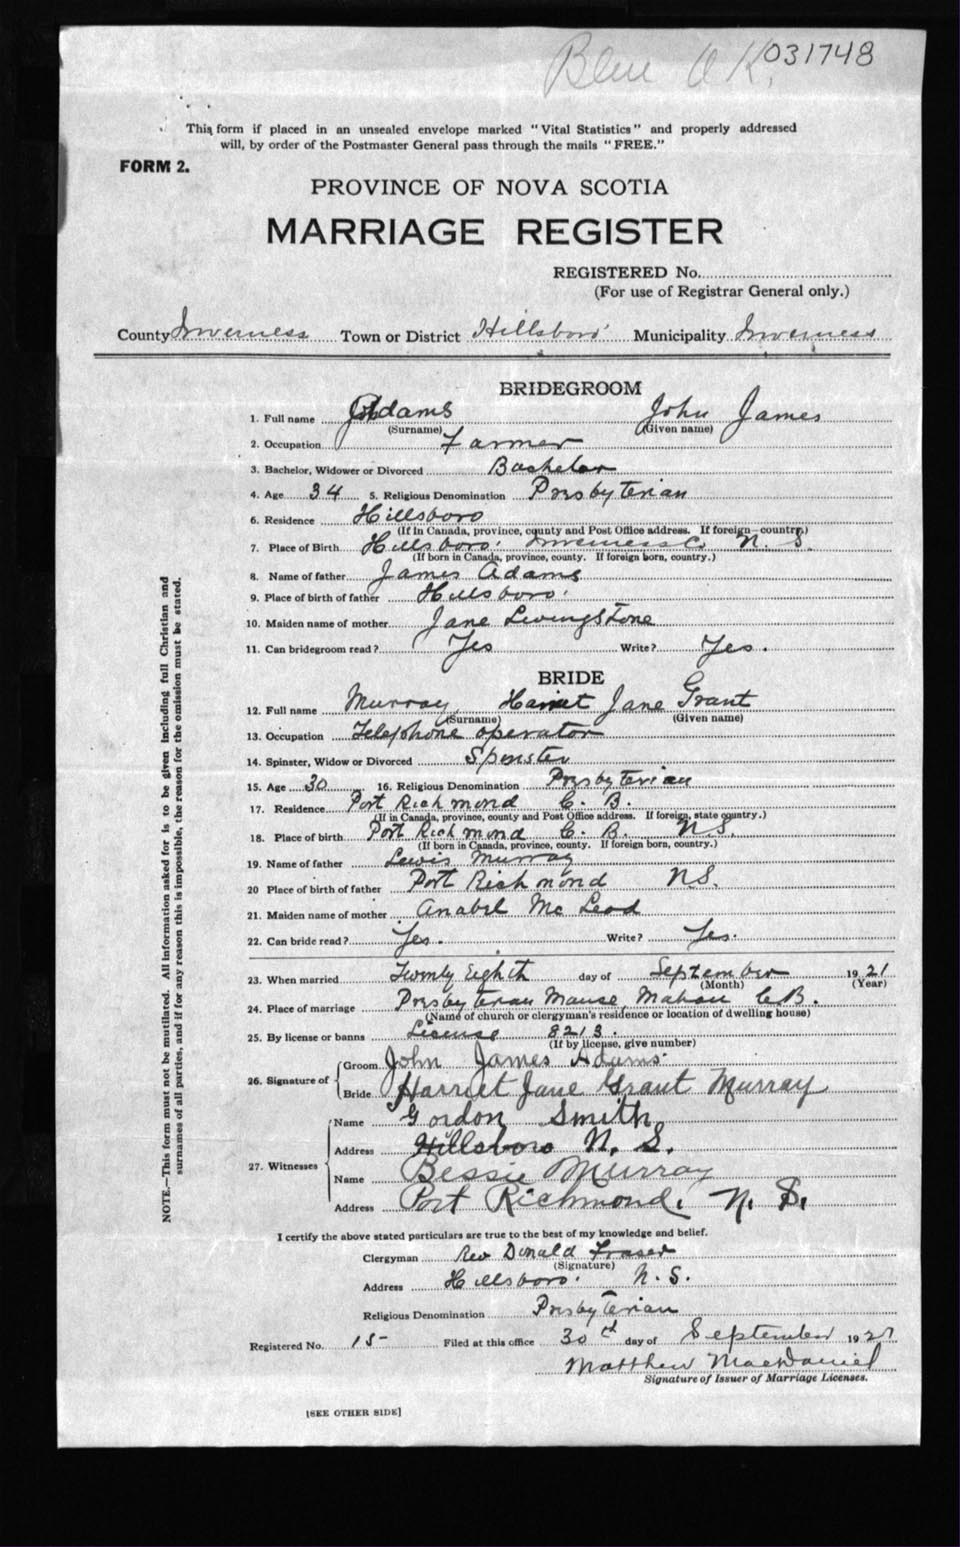 Blue OK. 031748
This form if placed in an unsealed envelope marked "Vital Statistics" and properly addressed
will, by order of the Postmaster General pass through the mails "FREE."
FORM 2.
PROVINCE OF NOVA SCOTIA
MARRIAGE REGISTER
REGISTERED No.
(For use of Registrar General only.)
County Inverness Town or District Hillsboro Municipality Inverness
BRIDEGROOM
1. Full name Adams John James
(Surname) (Given name)
2. Occupation Farmer
3. Bachelor, Widower or Divorced Bachelor
4. Age 34 5. Religious Denomination Presbyterian
6. Residence Hillsboro
(If in Canada, province, county and Post Office address. If foreign—country)
7. Place of Birth Hillsboro. Inverness Co N. S.
(If born in Canada, province, county. If foreign born, country.)
8. Name of father James Adams
9. Place of birth of father Hillsboro
10. Maiden name of mother Jane Livingstone
11. Can bridegroom read? Yes Write? Yes.
BRIDE
12. Full name Murray Harriet Jane Grant
(Surname) (Given name)
13. Occupation Telephone operator
14. Spinster, Widow or Divorced Spinster
15. Age 30 16. Religious Denomination Presbyterian
17. Residence Port Richmond C. B.
(If in Canada, province, county and Post Office address. If foreign, state country.)
18. Place of birth Port Richmond C. B. N.S.
(If born in Canada, province, county. If foreign born, country.)
19. Name of father Lewis Murray
20 Place of birth of father Port Richmond N.S.
21. Maiden name of mother Anabel Mc Leod
22. Can bride read? Yes. Write? Yes.
23. When married Twenty Eighth day of September 1921
(Month) (Year)
24. Place of marriage Presbyterian Manse, Mabou C.B.
(Name of church or clergyman's residence or location of dwelling house)
25. By license or banns License 8213.
(If by license, give number)
26. Signature of Groom John James Adams
Bride Harriet Jane Grant Murray
27. Witnesses Name Gordon Smith
Address Hillsboro N. S.
Name Bessie Murray
Address Port Richmond, N. S.
I certify the above stated particulars are true to the best of my knowledge and belief.
Clergyman Rev Donald Fraser
(Signature)
Address Hillsboro. N.S.
Religious Denomination Presbyterian
Registered No. 15 Filed at this office 30 day of September 192
Matthew MacDaniel
Signature of Issuer of Marriage Licenses.
[SEE OTHER SIDE]
NOTE.—This form must not be mutilated. All information asked for is to be given including full Christian and
surnames of all parties, and if for any reason this is impossible, the reason for the omission must be stated.